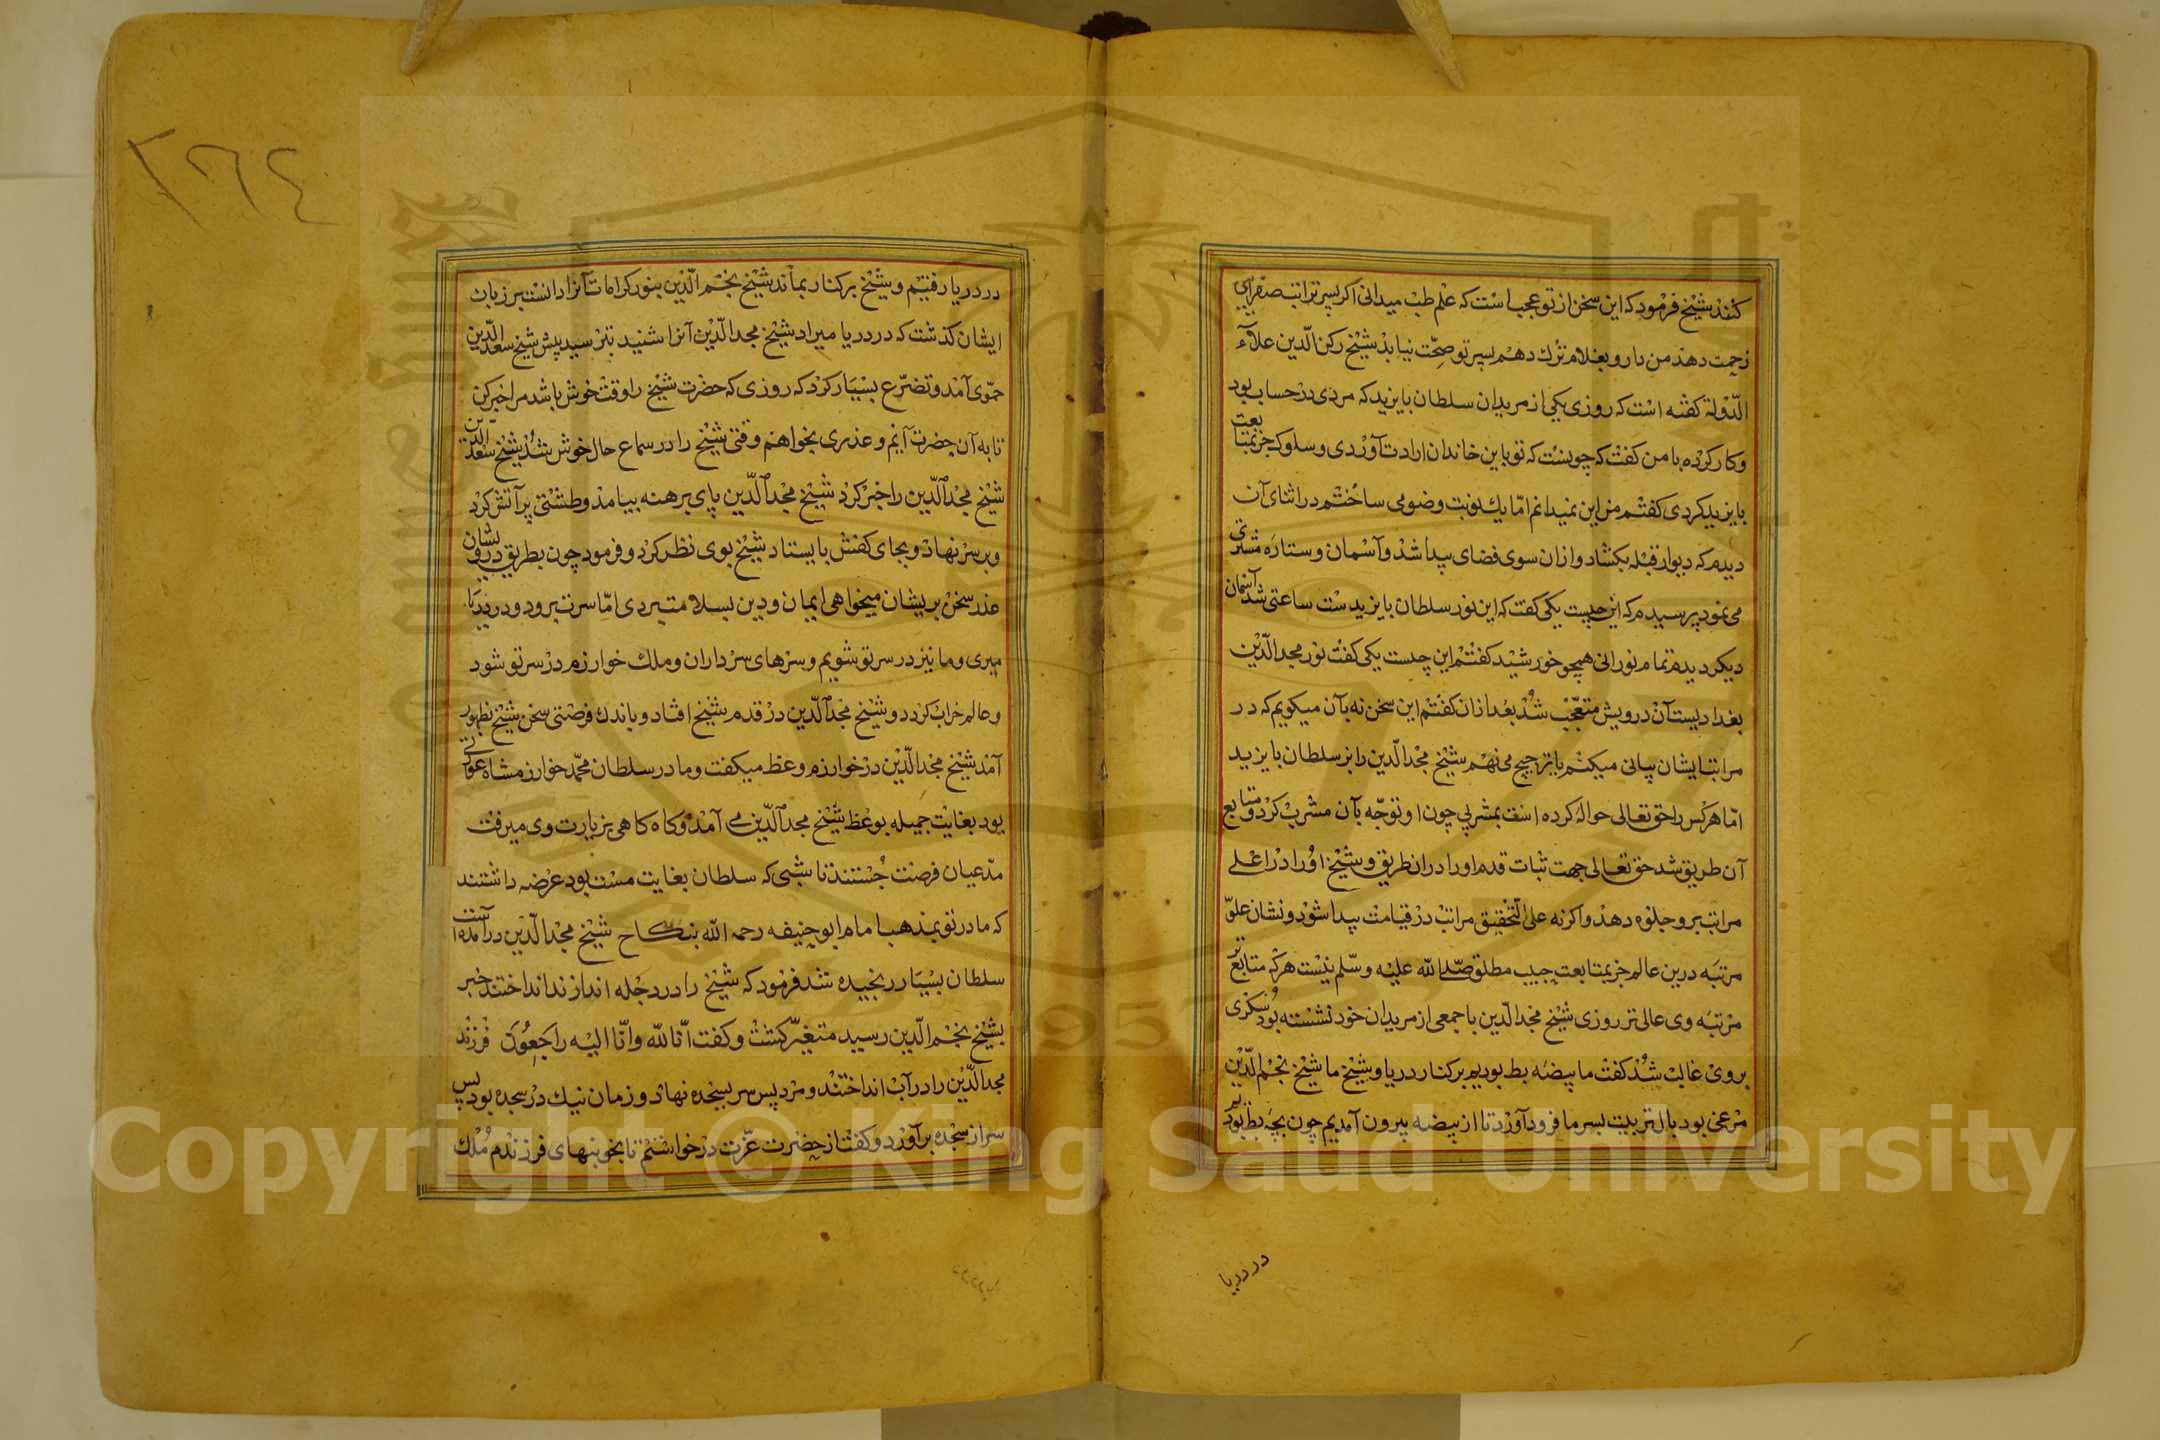 کنند شیخ فرمود که این سخن از تو عجب است که علم طب میدانی اکر پسر ترا تب صفرایی
زحمت دهد من دارو بغلام ترک دهم پسر تو صحّت نیابد شیخ رکن الدّین علآء
الدّولة کفته است که روزی یکی از مریدان سلطان بایزید که مردی در حساب بود
وکار کرده با من کفت که چونست که تو باین خاندان ارادت آوردی و سلوک جز بمتابعت
بایزید کردی کفتم من این نمیدانم امّا یک نوبت وضو می ساختم در اثنای آن
دیدم که دیوار قبله بکشاد و ازان سوی فضای پیدا شد و آسمان و ستاره مشتری
می نمود پرسیدم که این چیست یکی کفت که این نور سلطان بایزیدست ساعتی شد آسمان
دیکر دیدم تمام نورانی همچو خورشید کفتم این چیست یکی کفت نور مجد الدّین
بغدادیست آن درویش متعجّب شد بعد ازان کفتم این سخن نه بآن میکویم که در
مراتب ایشان بیانی میکنم یا ترجیح می نهم شیخ مجد الدّین را بر سلطان بایزید
امّا هرکس را حق تعالی حواله کرده است بمشربی چون او توجّه بآن مشرب کرد و متابع
آن طریق شد حق تعالی جهت ثبات قدم او را دران طریق و شیخ او را در اعلی
مراتب برو جلوه دهد و اکرنه علی التّحقیق مراتب در قیامت پیدا شود و نشان علوّ
مرتبه درین عالم جز بمتابعت حبیب مطلق صلّی الله علیه وسلّم نیست هرکه متابع تر
مرتبه وی عالی تر روزی شیخ مجد الدّین با جمعی از مریدان خود نشسته بود سکری
بروی غالب شد کفت ما بیضه بط بودیم برکنار دریا و شیخ ما شیخ نجم الدّین
مرغی بود بال تربیت بسر ما فرود آورد تا از بیضه بیرون آمدیم چون بچه بط بودیم
در دریا
٢٦٤
در دریا رفتیم و شیخ برکنار بماند شیخ نجم الدّین بنور کرامات آنرا دانست بر زبان
ایشان کذشت که در دریا میراد شیخ مجد الدّین آنرا شنید بترسید پیش شیخ سعد الدّین
حمّوی آمد و تضرّع بسیار کرد که روزی که حضرت شیخ را وقت خوش باشد مرا خبر کن
تا به آن حضرت آیم و عذری بخواهم وقتی شیخ را در سماع حال خوش شد شیخ سعد الدّین
شیخ مجد الدّین را خبر کرد شیخ مجد الدّین پای برهنه بیامد و طشتی پر آتش کرد
و بر سر نهاد و بجای کفش بایستاد شیخ بوی نظر کرد و فرمود چون بطریق درویشان
عذر سخن بریشان میخواهی ایمان و دین بسلامت بردی امّا سرت برود و در دریا
میری و ما نیز در سر تو شویم و سرهای سرداران و ملک خوارزم در سر تو شود
و عالم خراب کردد و شیخ مجد الدّین در قدم شیخ افتاد و باندک فرصتی سخن شیخ بظهور
آمد شیخ مجد الدّین در خوارزم وعظ میکفت و مادر سلطان محمّد خوارزمشاه عورتی
بود بغایت جمیله بوعظ شیخ مجد الدّین می آمد و کاه کاهی بزیارت وی میرفت
مدّعیان فرصت جستند تا شبی که سلطان بغایت مست بود عرضه داشتند
که مادر تو بمذهب امام ابو حنیفه رحمه الله بنکاح شیخ مجد الدّین درآمده است
سلطان بسیار رنجیده شد فرمود که شیخ را در دجله اندازند انداختند خبر
بشیخ نجم الدّین رسید متغیّر کشت و کفت انّا لله وانّا الیه راجعون فرزند
مجد الدّین را در آب انداختند و مرد پس سر بسجده نهاد و زمان نیک در سجده بود پس
سر از سجده برآورد و کفت از حضرت عزّت درخواستم تا بخونبهای فرزندم ملک
Copyright © King Saud University
1957